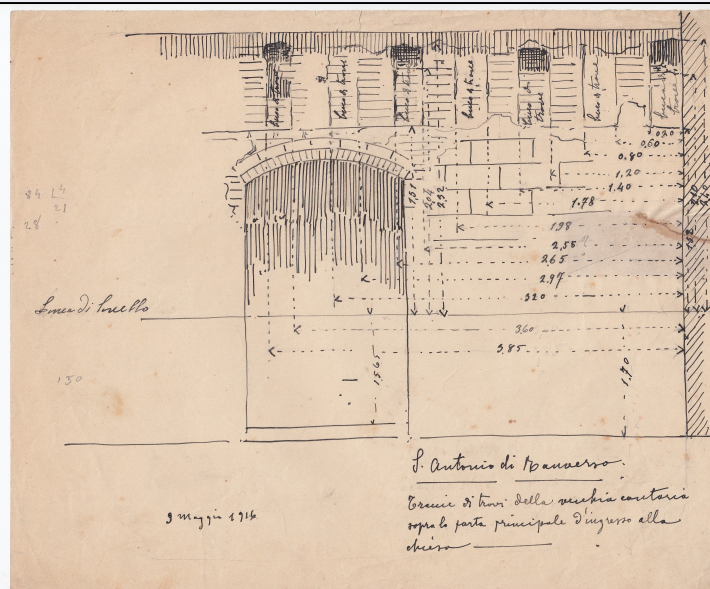 buco di trave
buco di trave
buco di trave
buco di trave
buco di trave
buco di trave
buco di trave
0.20
0.60
0.80
1.20
1.40
1.78
1.98
2,55
2.65
2.97
3.20
3.60
3.85
1,51
2,04
2,32
1.52
2.10
2.40
1,565
1.70
84 4
21
28
150
Linea di livello
S. Antonio di Ranverso.
Traccie di travi della vecchia cantoria
sopra la porta principale d'ingresso alla
chiesa
9 Maggio 1916